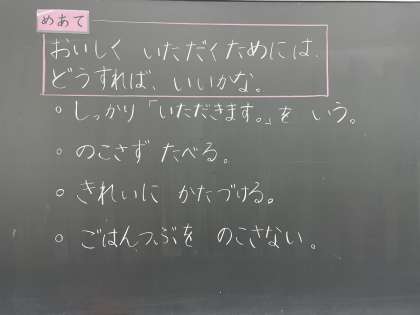 めあて
おいしく いただくためには、
どうすれば、いいかな。
○ しっかり「いただきます。」を いう。
○ のこさず たべる。
○ きれいに かたづける。
○ ごはんつぶを のこさない。